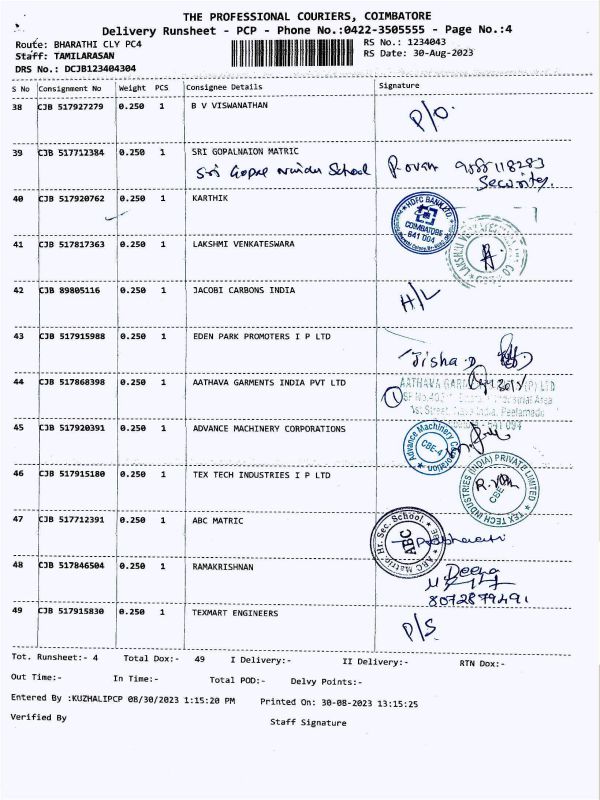 THE PROFESSIONAL COURIERS, COIMBATORE
Delivery Runsheet - PCP - Phone No.:0422-3505555 - Page No.:4
Route: BHARATHI CLY PC4
RS No.: 1234043
Staff: TAMILARASAN
RS Date: 30-Aug-2023
DRS No.: DCJB123404304
S No Consignment No Weight PCS Consignee Details Signature
38 CJB 517927279 0.250 1 B V VISWANATHAN P/O.
39 CJB 517712384 0.250 1 SRI GOPALNAION MATRIC
Sri Gopal Naidu School
Security
40 CJB 517920762 0.250 1 KARTHIK
HDFC BANK LTD
COIMBATORE
641 004
41 CJB 517817363 0.250 1 LAKSHMI VENKATESWARA
42 CJB 89805116 0.250 1 JACOBI CARBONS INDIA H/L
43 CJB 517915988 0.250 1 EDEN PARK PROMOTERS I P LTD
Jisha.D
44 CJB 517868398 0.250 1 AATHAVA GARMENTS INDIA PVT LTD
1
AATHAVA (P) LTD
Industrial Area
1st Street, India, Peelamedu
641 004
45 CJB 517920391 0.250 1 ADVANCE MACHINERY CORPORATIONS
Advance Machinery Corporation
CBE-4
46 CJB 517915180 0.250 1 TEX TECH INDUSTRIES I P LTD
TEX TECH INDUSTRIES (INDIA) PRIVATE LIMITED
CBE
47 CJB 517712391 0.250 1 ABC MATRIC
ABC Matric. Hr. Sec. School.
ABC
48 CJB 517846504 0.250 1 RAMAKRISHNAN
Deepa
8072879491
49 CJB 517915830 0.250 1 TEXMART ENGINEERS P/S
Tot. Runsheet:- 4 Total Dox:- 49 I Delivery:- II Delivery:- RTN Dox:-
Out Time:- In Time:- Total POD:- Delvy Points:-
Entered By :KUZHALIPCP 08/30/2023 1:15:20 PM Printed On: 30-08-2023 13:15:25
Verified By
Staff Signature